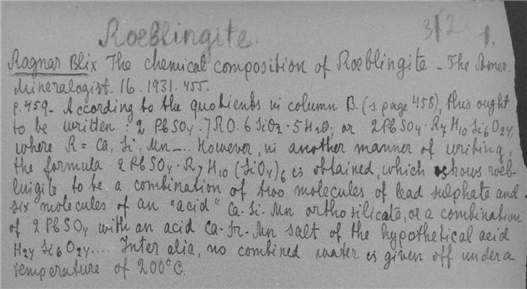 Roeblingite. 312 1.
Ragnar Blix The chemical composition of Roeblingite - The Amer.
Mineralogist. 16. 1931. 455.
p. 459 - According to the quotients in column B. (s page 458), this ought
to be written : 2 PbSO4 · 7RO. 6 SiO2 · 5H2O. or 2PbSO4 · R7 H10 Si6 O24,
where R = Ca, Mn... However, in another manner of writing,
the formula 2 PbSO4 · R7 H10 (SiO4)6 is obtained, which shows roeb-
lingite to be a combination of two molecules of lead sulphate and
six molecules of an "acid" Ca-Si-Mn orthosilicate, or a combination
of 2 PbSO4 with an acid Ca-Sr-Mn salt of the hypothetical acid
H24 Si6 O24.... Inter alia, no combined water is given off under a
temperature of 200°C.